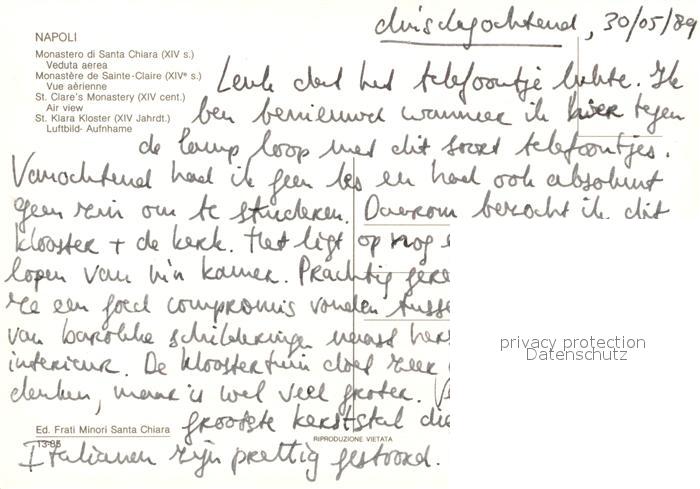 dinsdagochtend, 30/05/89
NAPOLI
Monastero di Santa Chiara (XIV s.)
Veduta aerea
Monastère de Sainte-Claire (XIVe s.)
Vue aèrienne
St. Clare's Monastery (XIV cent.)
Air view
St. Klara Kloster (XIV Jahrdt.)
Luftbild- Aufnhame
Leuk dat het telefoontje lukte. Ik
ben benieuwd wanneer ik hier tegen
de lamp loop met dit soort telefoontjes.
Vanochtend had ik geen les en had ook absoluut
geen zin om te studeren. Daarom bezocht ik dit
klooster + de kerk. Het ligt op nog
lopen van m'n kamer. Prachtig
ze een goed compromis vonden
van barokke schilderingen naast
interieur. De kloostertuin doet zeer
denken, maar is wel veel groter.
grootste kerststal die
Italianen zijn prettig gestoord.
Ed. Frati Minori Santa Chiara
13-85
RIPRODUZIONE VIETATA
privacy protection
Datenschutz